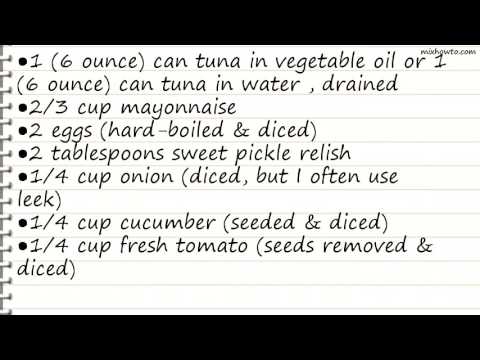 mixhowto.com
●1 (6 ounce) can tuna in vegetable oil or 1
(6 ounce) can tuna in water , drained
●2/3 cup mayonnaise
●2 eggs (hard-boiled & diced)
●2 tablespoons sweet pickle relish
●1/4 cup onion (diced, but I often use
leek)
●1/4 cup cucumber (seeded & diced)
●1/4 cup fresh tomato (seeds removed &
diced)